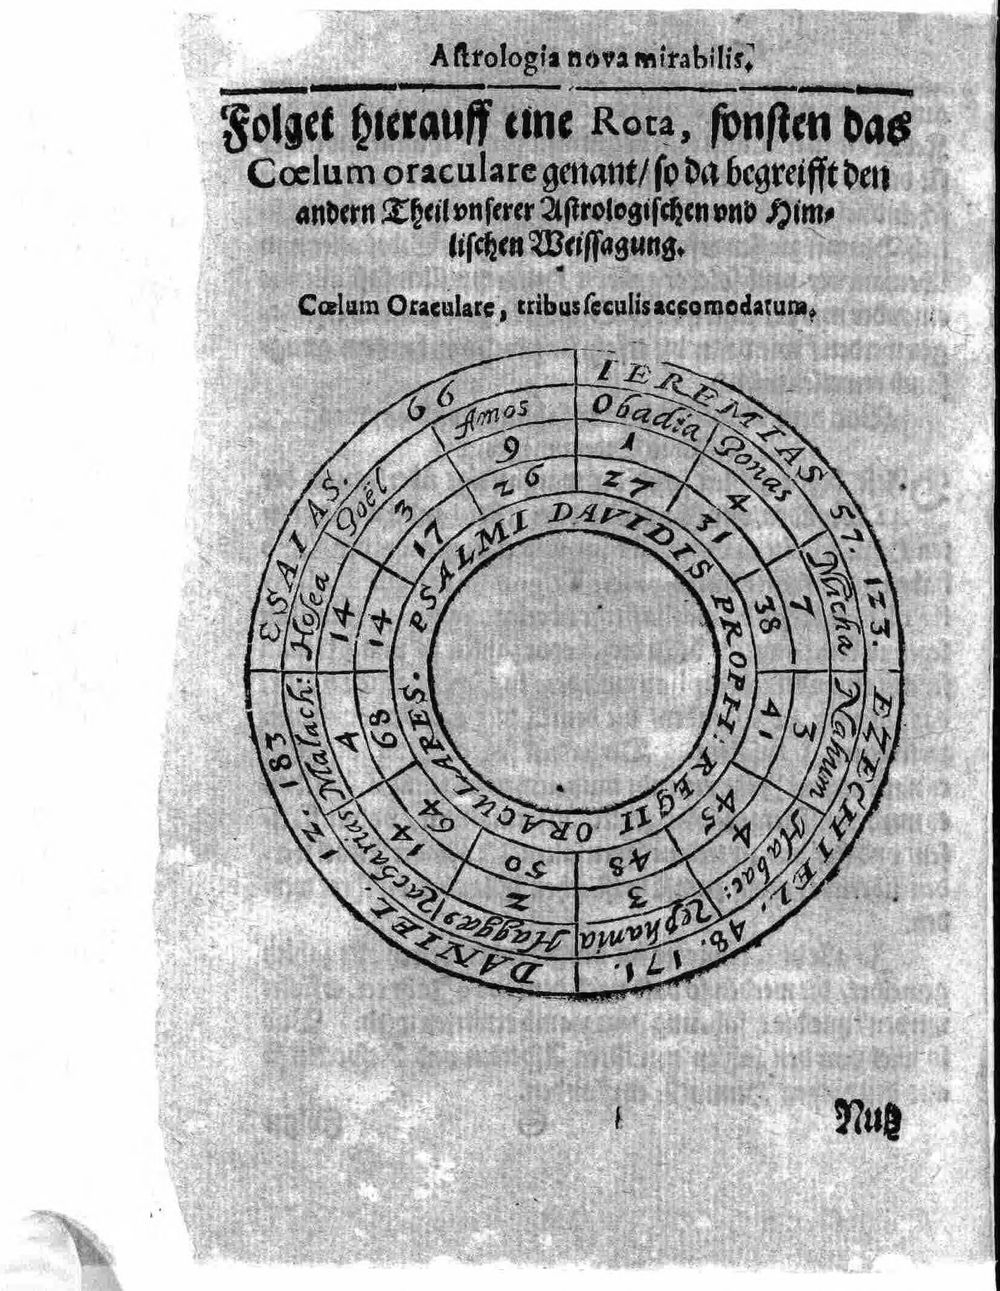 Astrologia nova mirabilis.
Folget hierauff eine Rota, sonsten das
Cœlum oraculare genant/ so da begreifft den
andern Theil vnserer Astrologischen vnd Him-
lischen Weissagung.
Cœlum Oraculare, tribus seculis accomodatum.
IEREMIAS 57. 123.
EZECHIEL. 48. 171.
DANIEL. 12. 183
ESAIAS. 66
Obadia
Jonas
Micha
Nahum
Habac:
Zephania
Haggas
Zacharias
Malach:
Hosea
Joël
Amos
1
4
7
3
4
3
2
14
4
14
3
9
27
31
38
41
45
48
50
64
68
14
17
26
PSALMI DAVIDIS PROPH: REGII ORACULARES.
Nutz